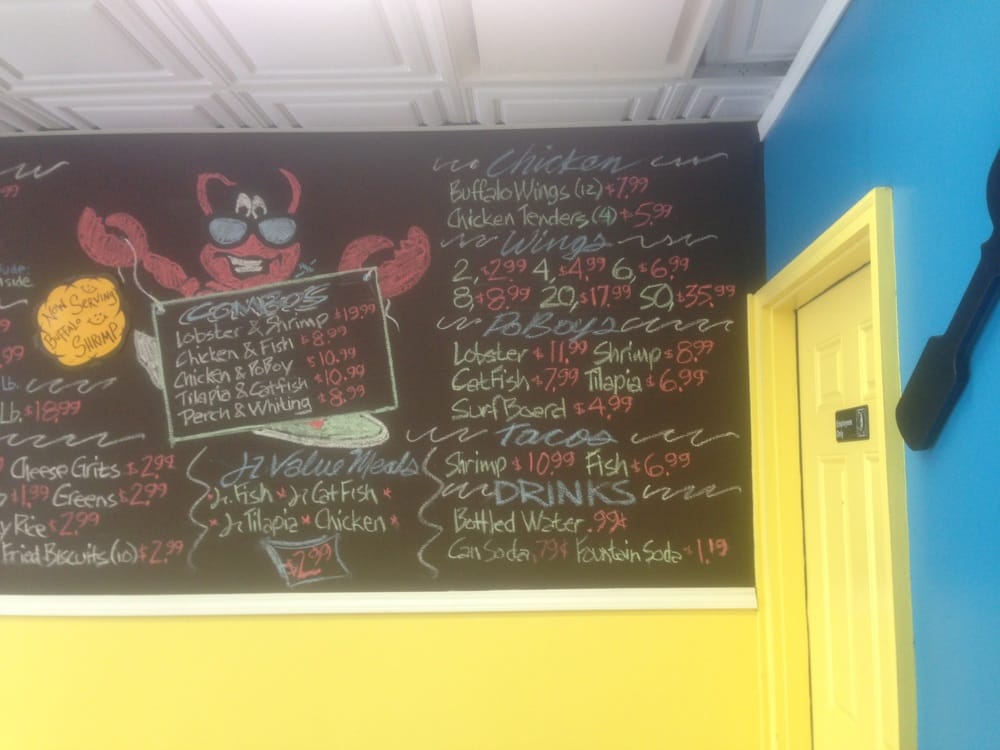 .99
nside
Now Serving
Buffalo
Shrimp
.99
Lb.
Lb. $18.99
Cheese Grits $2.99
$1.99 Greens $2.99
y Rice $2.99
Fried Biscuits (10) $2.99
Combo's
Lobster & Shrimp $19.99
Chicken & Fish $8.99
Chicken & PoBoy $10.99
Tilapia & Catfish $10.99
Perch & Whiting $8.99
Jr Value Meals
Jr. Fish * Jr CatFish *
* Jr Tilapia * Chicken *
$2.99
Chicken
Buffalo Wings (12) $7.99
Chicken Tenders (4) $5.99
Wings
2, $2.99 4, $4.99 6, $6.99
8, $8.99 20, $17.99 50, $35.99
PoBoys
Lobster $11.99 Shrimp $8.99
CatFish $7.99 Tilapia $6.99
Surf Board $4.99
Tacos
Shrimp $10.99 Fish $6.99
DRINKS
Bottled Water .99¢
Can Soda .79¢ Fountain Soda $1.19
Employees
Only